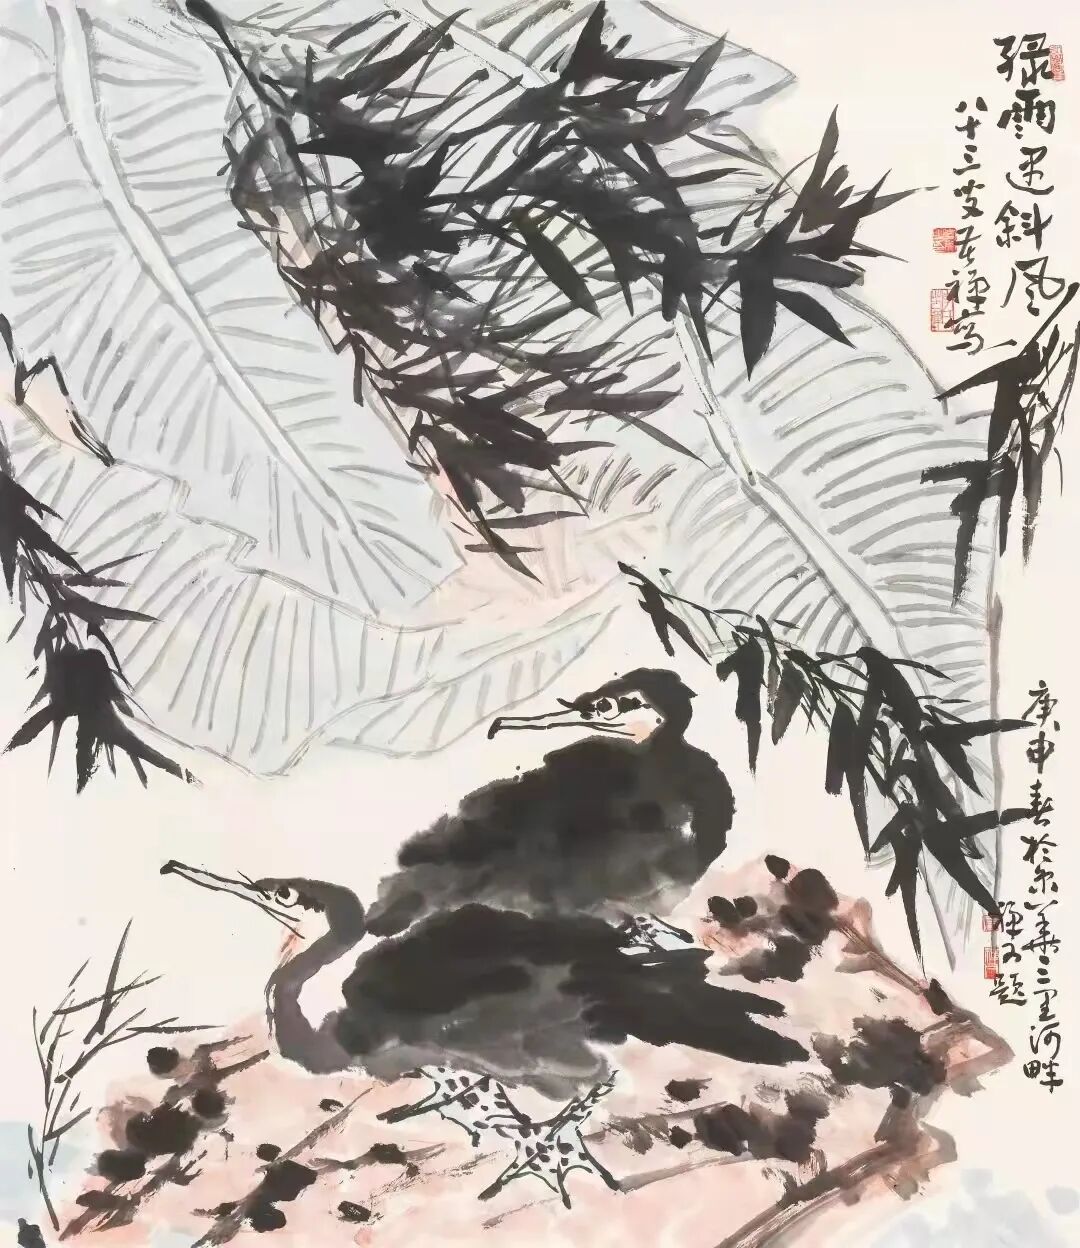 绿雨迎斜风
八十三叟苦禅写
庚申春於京華三里河畔
禅又題